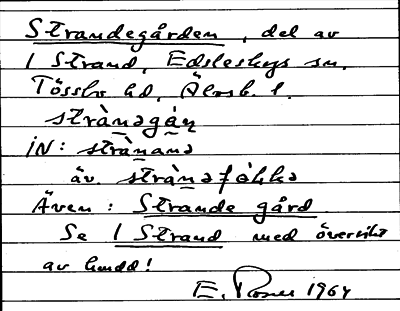 Strandegården, del av
1 Strand, Edsleskogs sn.
Tössbo hd, Älvsb. l.
strànəgáɳ
iN: strànanə
äv. strànəfòkkə
Även: Strande gård
Se 1 Strand med översikt
av hmdd!
E. Rosell 1964